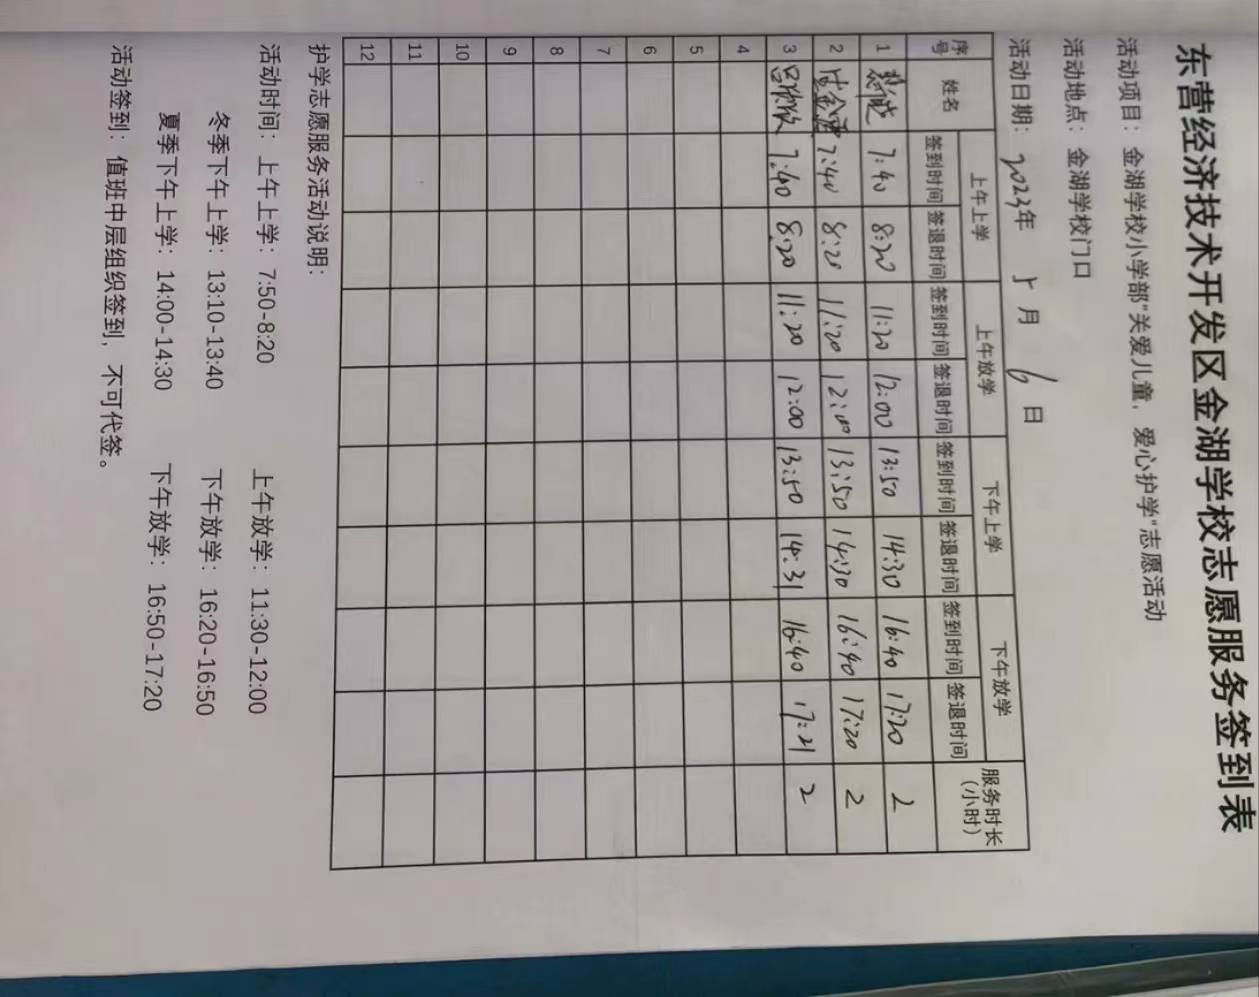 东营经济技术开发区金湖学校志愿服务签到表
活动项目：金湖学校小学部“关爱儿童，爱心护学”志愿活动
活动地点：金湖学校门口
活动日期：2023年 5月 6日
序号 姓名 上午上学 上午放学 下午上学 下午放学 服务时长（小时）
签到时间 签退时间 签到时间 签退时间 签到时间 签退时间 签到时间 签退时间
1 7:40 8:20 11:20 12:00 13:50 14:30 16:40 17:20 2
2 7:40 8:20 11:20 12:00 13:50 14:30 16:40 17:20 2
3 7:40 8:20 11:20 12:00 13:50 14:31 16:40 17:21 2
4
5
6
7
8
9
10
11
12
护学志愿服务活动说明：
活动时间：上午上学：7:50-8:20 上午放学：11:30-12:00
冬季下午上学：13:10-13:40 下午放学：16:20-16:50
夏季下午上学：14:00-14:30 下午放学：16:50-17:20
活动签到：值班中层组织签到，不可代签。